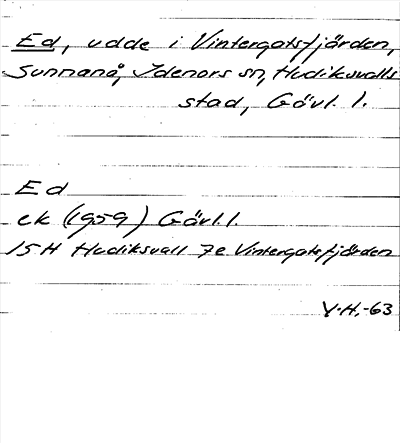 Ed, udde i Vintergatsfjärden,
Sunnanå, Idenors sn, Hudiksvalls
stad, Gävl. l.
Ed
ek (1959) Gävl. l.
15H Hudiksvall 7e Vintergatsfjärden
Y.H.-63